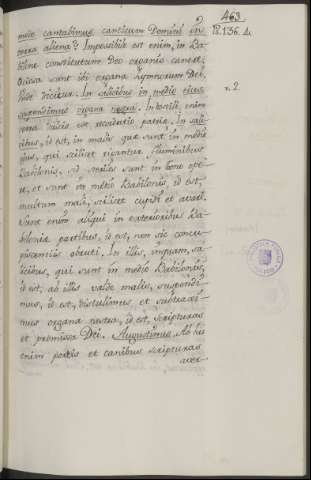 463
modo cantabimus canticum Domini in
Ps. 136. 4.
terra aliena? Impossibile est enim, in Ba-
bilone constitutum Deo organis canere,
quia sunt ibi organa hymnorum Dei,
Unde dicitur. In salicibus in medio eius
v. 2.
suspendimus organa nostra. In exilii enim
terra dulcis est recordatio patriæ. In sali-
cibus, id est, in malis que sunt in medio
eius, qui scilicet rigantur fluminibus
Babilonis. Ad males sunt in bono ope-
re, et sunt in medio Babilonis, id est,
multum mali, scilicet cupidi et avari.
Sunt enim aliqui in exterioribus Ba-
bilonia partibus, id est, non sic concu-
piscentiis obruti. In illis, inquam, sa-
licibus, qui sunt in medio Babilonis,
id est, ab illis valde malis, suspendi-
mus, id est, distulimus et subtraxi-
mus organa nostra, id est, scripturas
et promissa Dei. Augustinus. Ab his
enim porcis et canibus scripturas
aver-